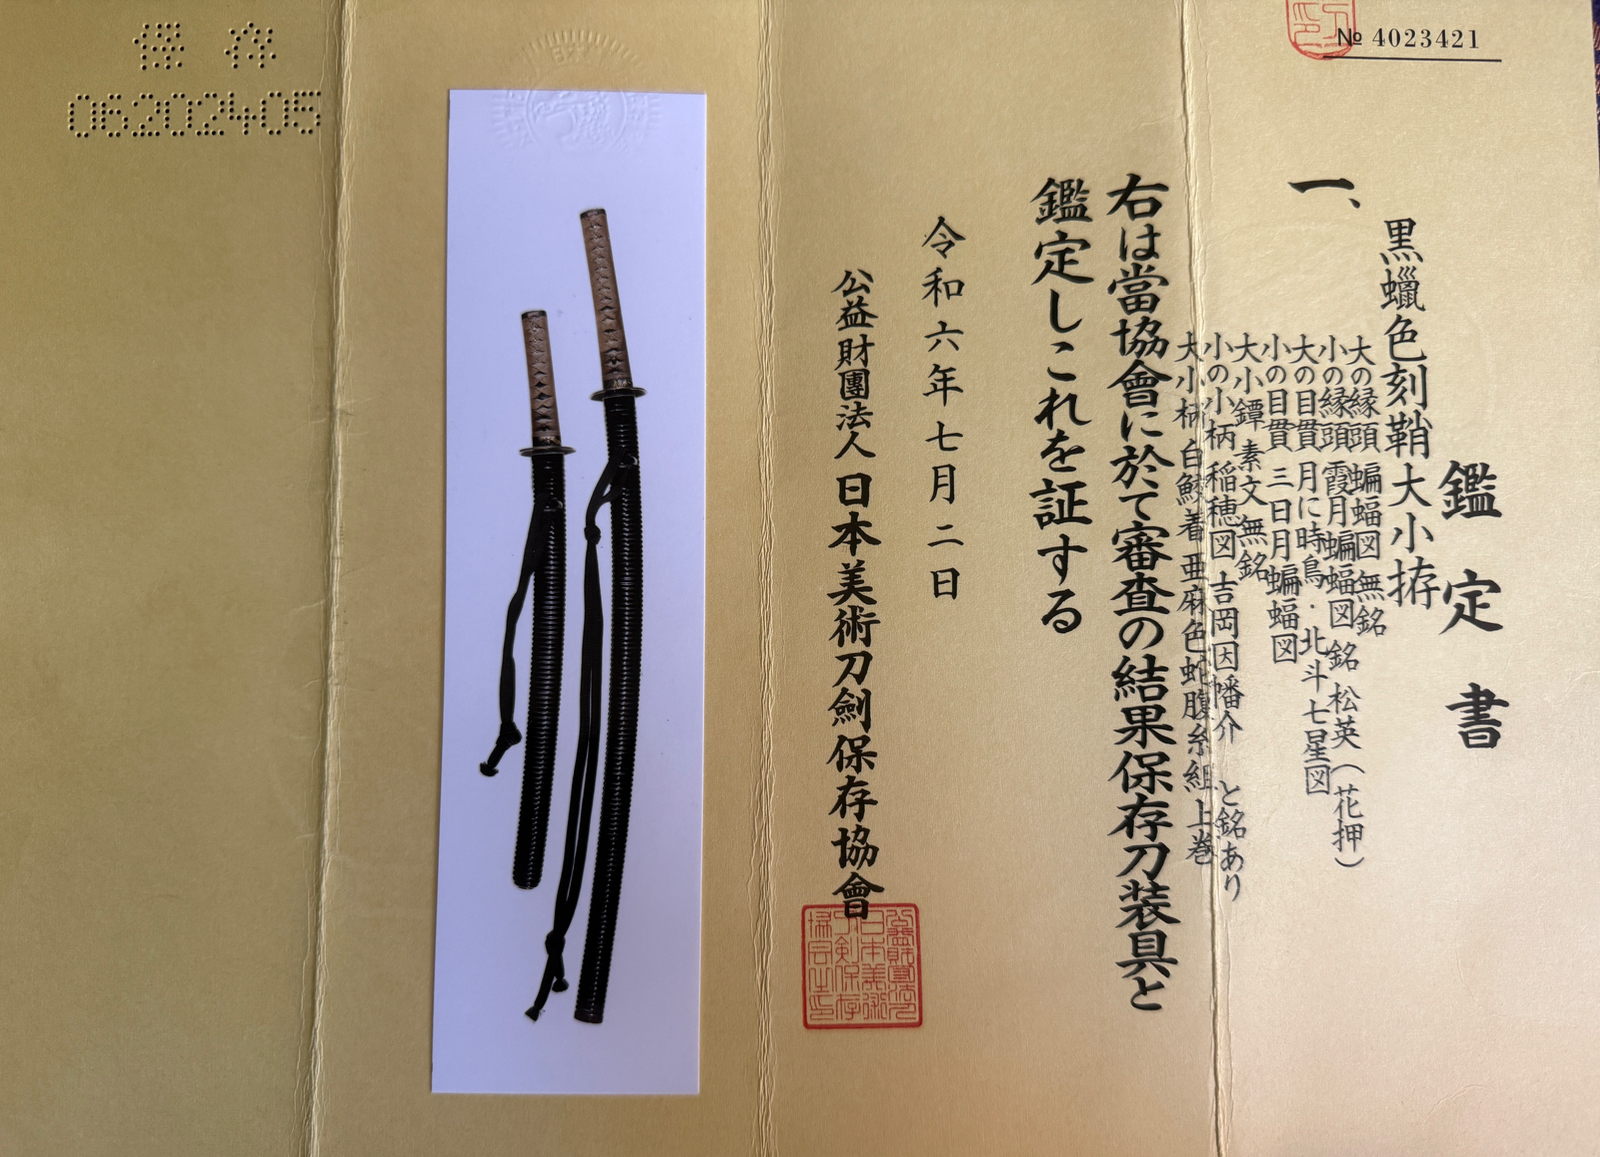 № 4023421
鑑定書
一、
黒蠟色刻鞘大小拵
大の縁頭 蝙蝠図 無銘
小の縁頭 霞月蝙蝠図 銘 松英(花押)
大の目貫 月に時鳥・北斗七星図
小の目貫 三日月蝙蝠図
大小鐔 素文 無銘
小の小柄 稲穂図 吉岡因幡介 と銘あり
大小柄 白鮫着 亜麻色蛇腹糸組上巻
右は當協會に於て審査の結果保存刀装具と
鑑定しこれを証する
令和六年七月二日
公益財團法人 日本美術刀劍保存協會
保存
06202405